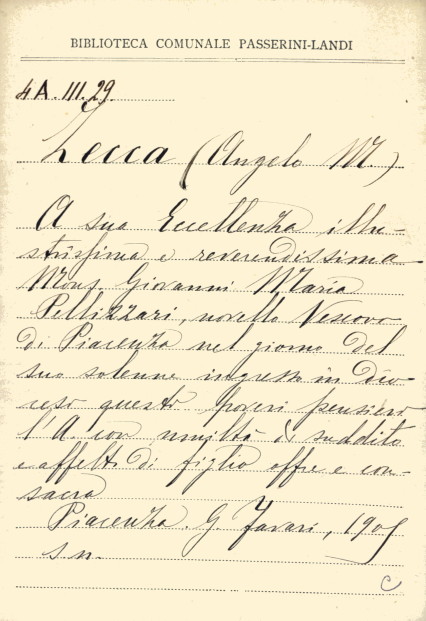 BIBLIOTECA COMUNALE PASSERINI-LANDI
4A.III.29.
Zecca (Angelo M.)
A sua Eccellenza illu-
strissima e reverendissima
Mons. Giovanni Maria
Pellizzari, novello Vescovo
di Piacenza nel giorno del
suo solenne ingresso in dio-
cesi questi poveri pensieri
l'A con umiltà di suddito
e affetto di figlio offre e con-
sacra
Piacenza. G. Tavari, 1905
s.n.
C